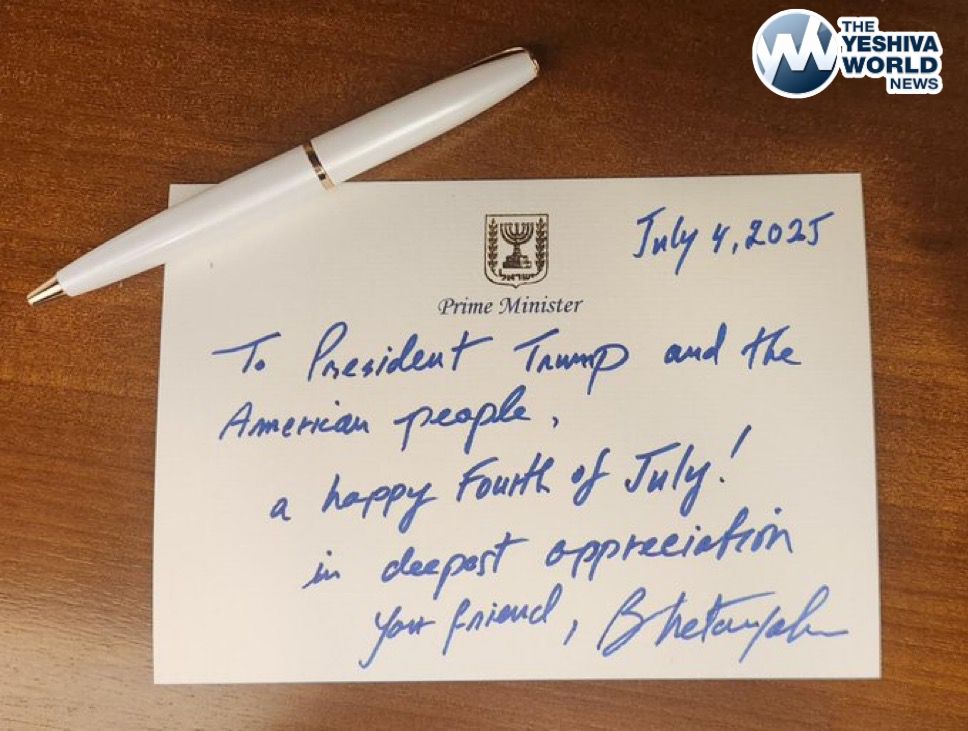 THE
YESHIVA
WORLD
NEWS
July 4, 2025
ישראל
Prime Minister
To President Trump and the
American people,
a happy Fourth of July!
in deepest appreciation
your friend, B Netanyahu